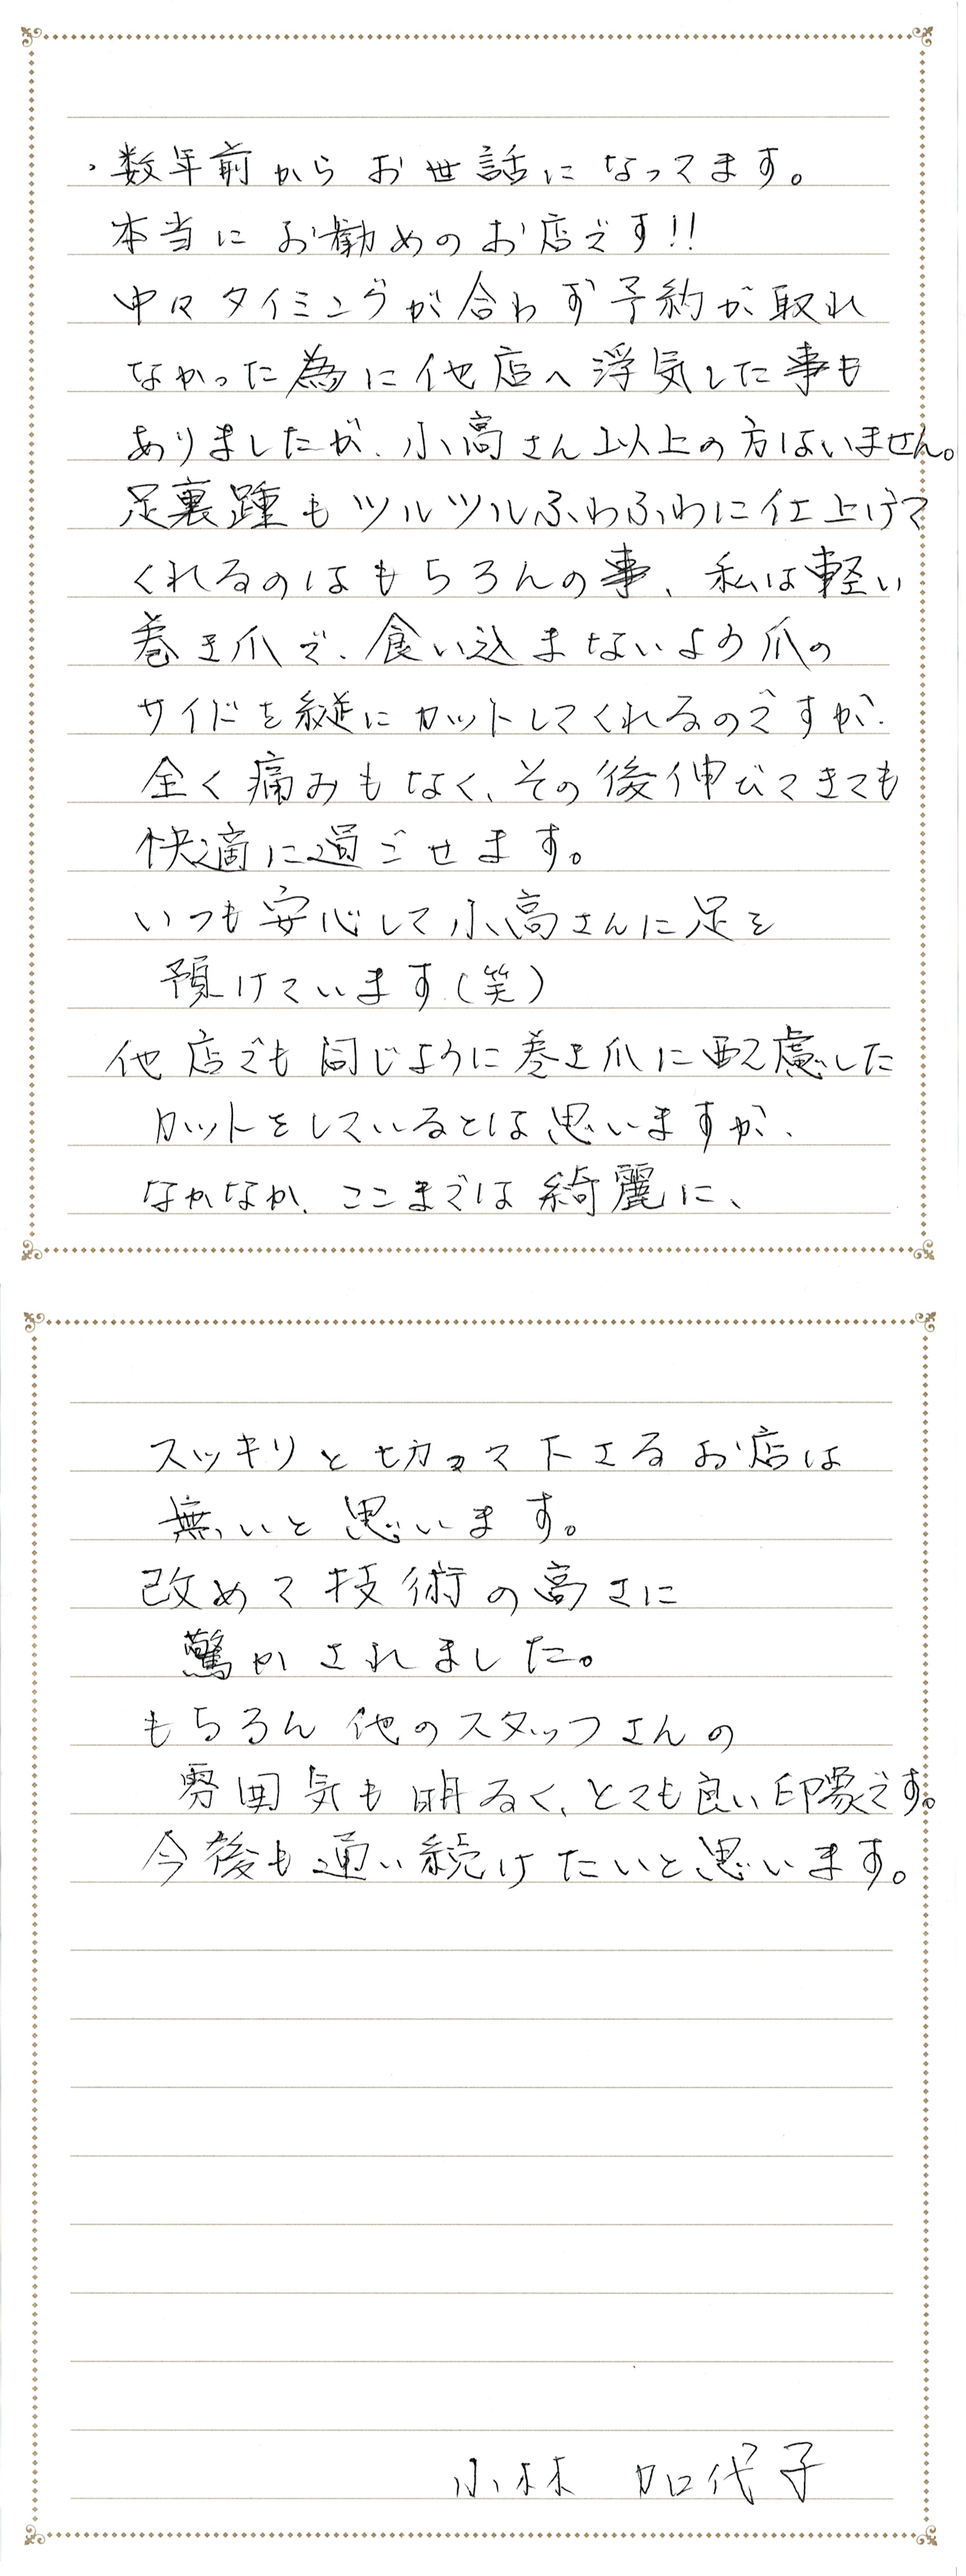 ・数年前からお世話になってます。
本当にお勧めのお店です!!
中々タイミングが合わず予約が取れ
なかった為に他店へ浮気した事も
ありましたが、小高さん以上の方はいません。
足裏踵もツルツルふわふわに仕上げて
くれるのはもちろんの事、私は軽い
巻き爪で、食い込まないよう爪の
サイドを縦にカットしてくれるのですが、
全く痛みもなく、その後伸びてきても
快適に過ごせます。
いつも安心して小高さんに足を
預けています(笑)
他店でも同じように巻き爪に配慮した
カットをしているとは思いますが、
なかなか、ここまでは綺麗に、
スッキリと切って下さるお店は
無いと思います。
改めて技術の高さに
驚かされました。
もちろん他のスタッフさんの
雰囲気も明るく、とても良い印象です。
今後も通い続けたいと思います。
小林 加代子